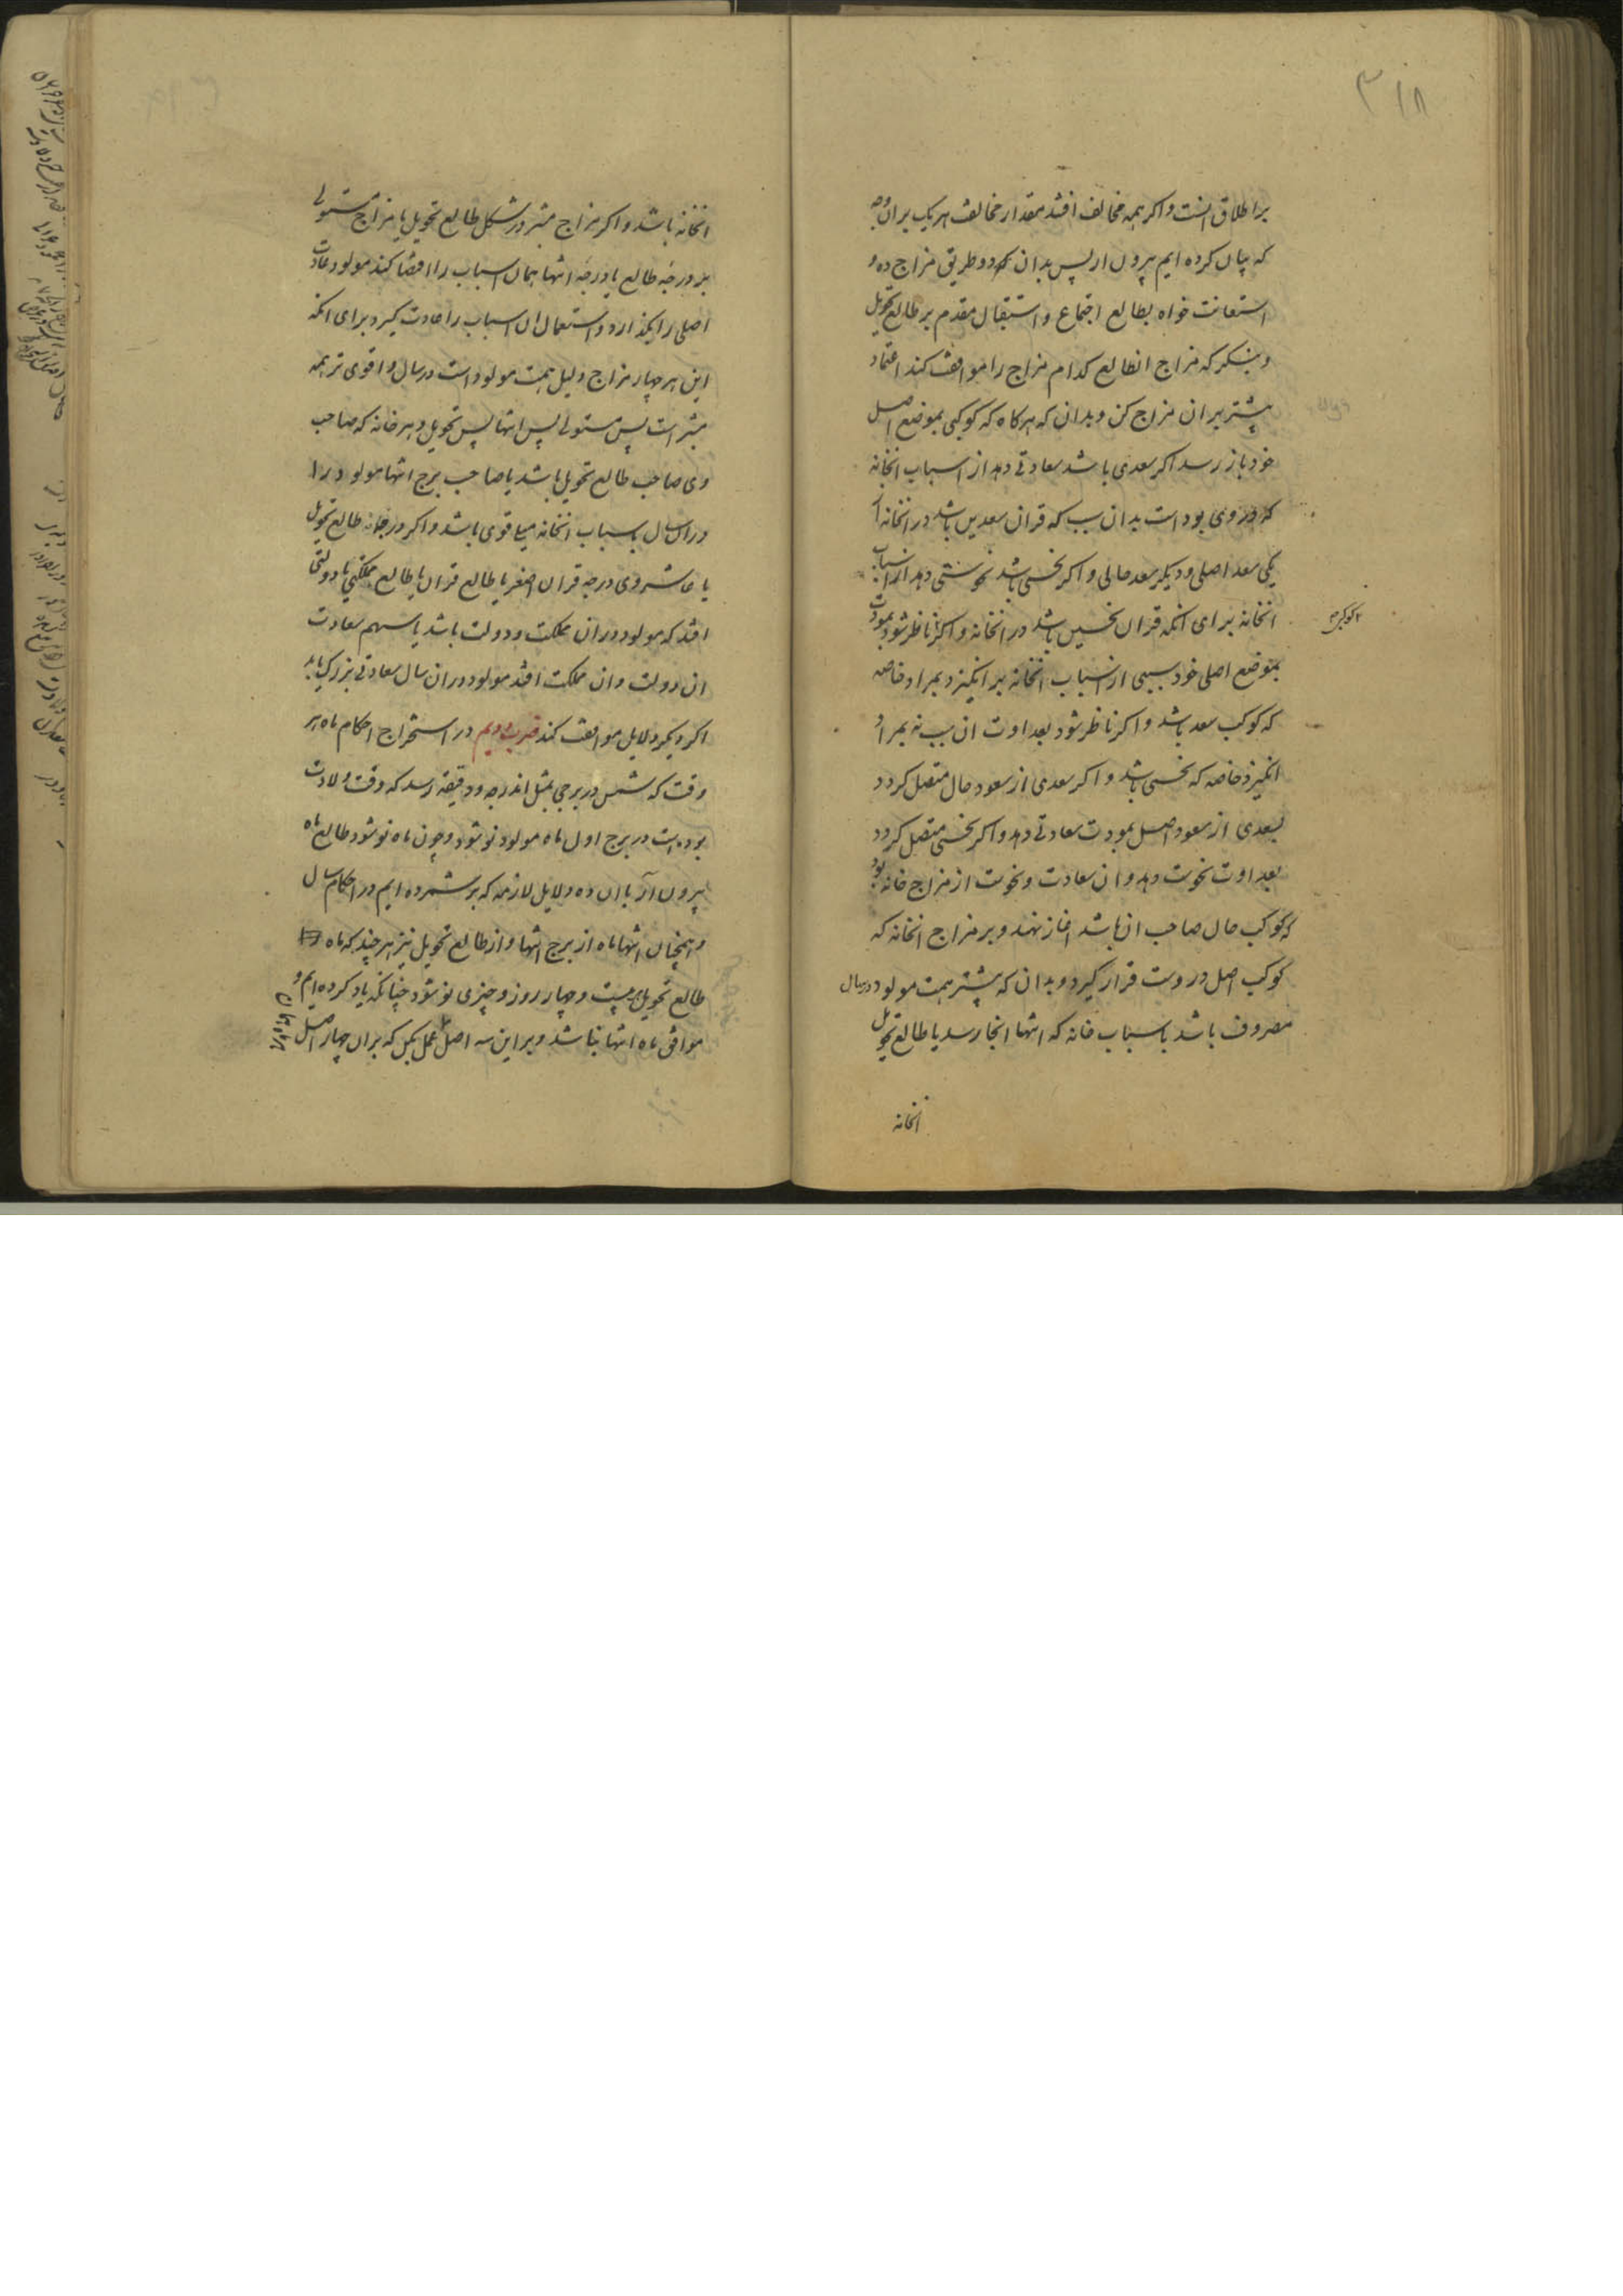 ۳۱۸
بر اطلاق انست و اکر همه مخالف افتد بمقدار مخالفت هر یک بران وجه
که بیان کرده ایم بیرون ار پس بدان دو طریق مزاج ده و
استعانت خواه بطالع اجتماع و استقبال مقدم بر طالع تحویل
و بنکر که مزاج انطالع کدام مزاج را موافقت کند اعتماد
بیشتر بران مزاج کن و بدان که هرکاه که کوکبی بموضع اصل
خود باز رسد اکر سعدی باشد سعادتی دهد از اسباب انخانه
که در وی بود است بدان سبب که قران سعدین باشد در انخانه
یکی سعد اصلی و دیکر سعد حالی و اکر نحسی باشد نحوستی دهد از اسباب
انخانه برای انکه قران نحسین باشد در انخانه و اکر ناظر شود بمودت
بموضع اصلی خود سببی از اسباب انخانه بر انکیزد بمراد خاصه
که کوکب سعد باشد و اکر ناظر شود بعداوت ان سبب نه بمراد
انکیزد خاصه که نحسی باشد و اکر سعدی از سعود حال متصل کردد
بسعدی از سعود اصل بمودت سعادتی دهد و اکر نحسی متصل کردد
بعداوت نحوست دهد و ان سعادت و نحوست از مزاج خانه بود
که کوکب حال صاحب ان باشد اغاز نهد و بر مزاج انخانه که
کوکب اصل دروست قرار کیرد و بدان که بیشتر همت مولود در سال
مصروف باشد باسباب خانه که انتها انجا رسد یا طالع تحویل
انخانه
انخانه باشد و اکر مزاج مبتز در شکل طالع تحویل یا مزاج مستولی
بر درجه طالع یا درجه انتها همان اسباب را اقتضا کند مولود عادت
اصلی را بکذارد و استعمال ان اسباب را عادت کیرد برای انکه
این هر چهار مزاج دلیل همت مولود است در سال و اقوی تر همه
مبتز است پس مستولی پس انتها پس تحویل و هر خانه که صاحب
وی صاحب طالع تحویل باشد یا صاحب برج انتها مولود را
دران سال باسباب انخانه میلی قوی باشد و اکر درجه طالع تحویل
یا عاشر وی درجه قران اصغر یا طالع قران یا طالع مملکتی یا دولتی
افتد که مولود دران مملکت و دولت باشد یا سهم سعادت
ان دولت و ان مملکت افتد مولود دران سال سعادتی بزرک یابد
اکر دیکر دلایل موافقت کند ضرب دویم در استخراج احکام ماه هر
وقت که شمس در برجی بمثل اندرجه و دقیقه رسد که وقت ولادت
بوده است در برج اول ماه مولود نو شود و چون ماه نو شود طالع ماه
بیرون آر با ان ده دلایل لازمه که بر شمرده ایم در احکام سال
و همچنان انتها ماه از برج انتها و از طالع تحویل نیز هر چند که ماه
طالع تحویل بیست و چهار روز و چیزی نو شود چنانکه یاد کرده ایم و
موافق ماه انتها نباشد و بر این سه اصل عمل بکن که بران چهار اصل